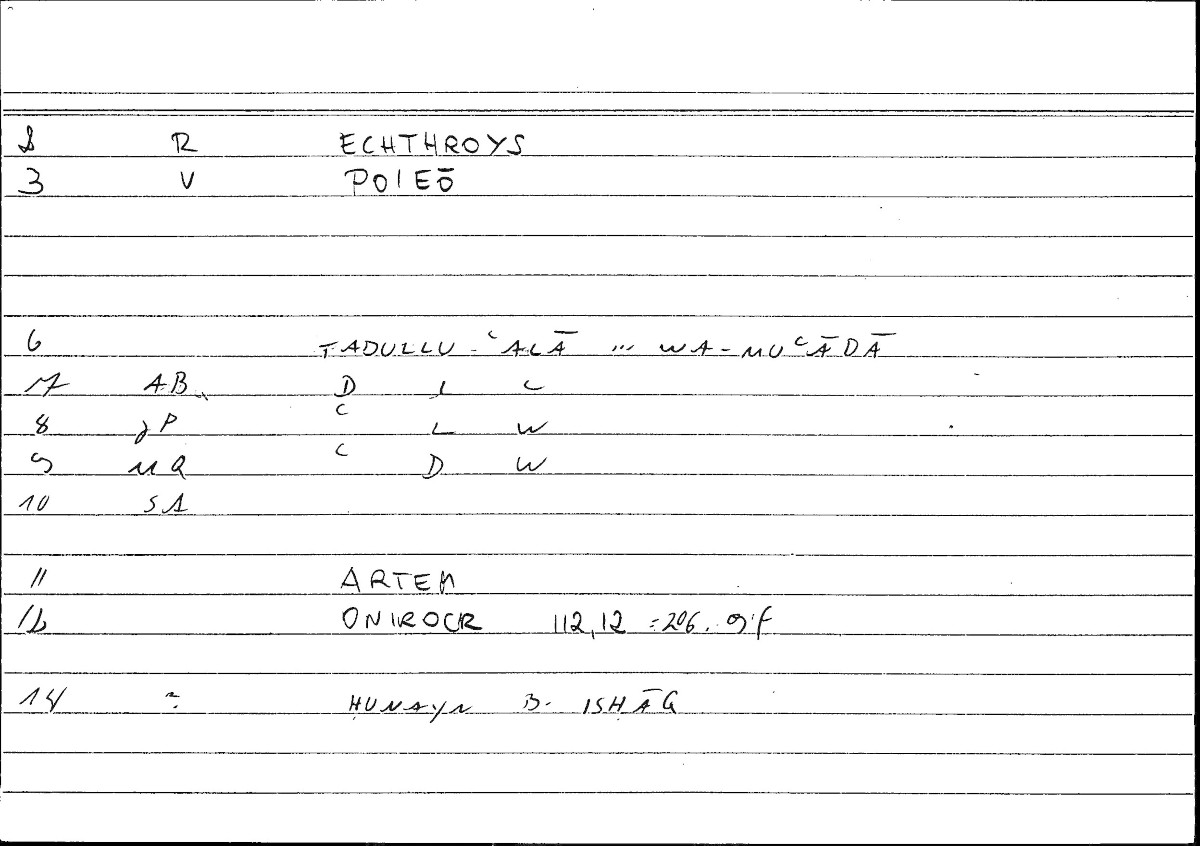 R ECHTHROYS
3 V POIEŌ
6 TADULLU-ʿALĀ ... WA-MUʿĀDĀ
7 AB D L L
8 JP ʿ L W
9 MQ ʿ D W
10 SA
11 ARTEM
12 ONIROCR 112,12 =206. 9'f
14 ? ḤUNAYN B. ISḤĀQ